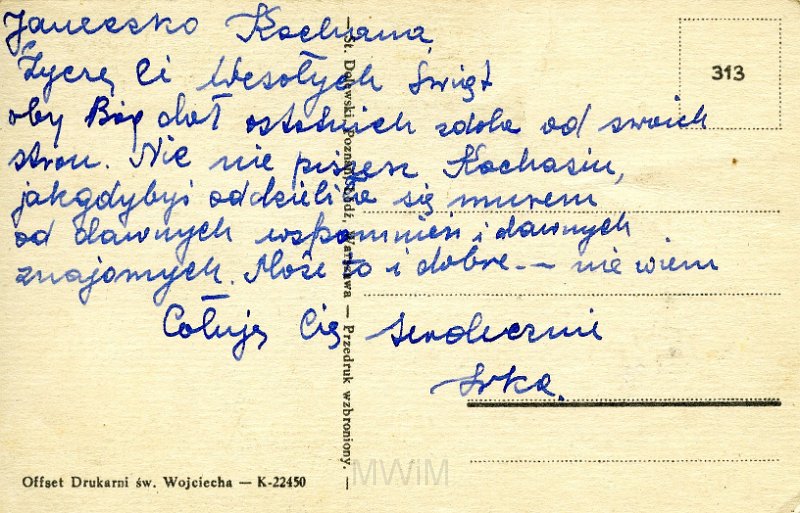 Janeczko Kochana,
Życzę Ci Wesołych Świąt
oby Bóg dał ostatnich zdala od swoich
stron. Nic nie piszesz Kochasiu,
jakgdybyś oddzieliła się murem
od dawnych wspomnień i dawnych
znajomych. Może to i dobre — nie wiem
Całuję Cię serdecznie
Irka.
313
St. Dolewski, Poznań-Łódź, Warszawa — Przedruk wzbroniony. —
Offset Drukarni św. Wojciecha — K-22450
MWiM